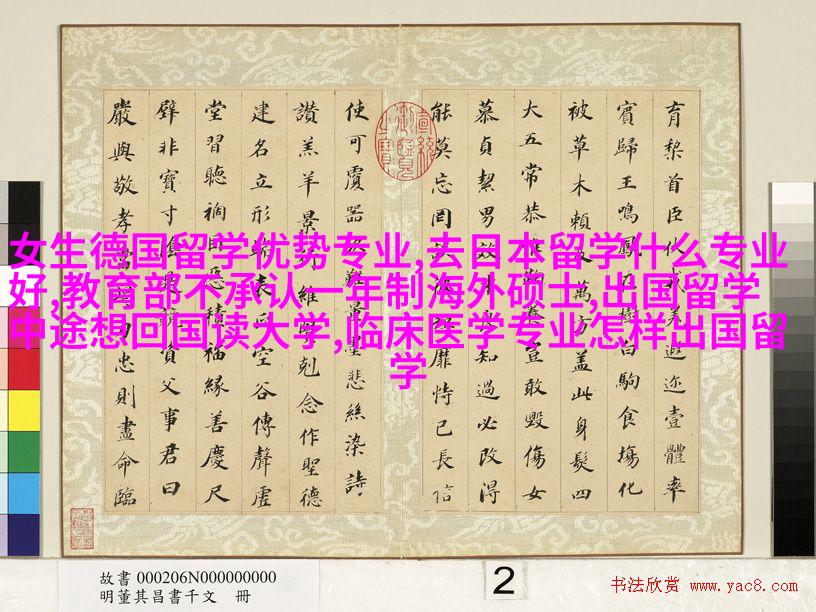 女生德国留学优势专业,去日本留学什么专业
好,教育部不承认一年制海外硕士,出国留学
中途想回国读大学,临床医学专业怎样出国留
学
育黎首臣伏戎羌遐迩壹體率
賓歸王鳴鳳在樹白駒食場化
被草木賴及萬方蓋此身髮四
大五常恭惟鞠養豈敢毀傷女
慕貞絜男效才良知過必改得
能莫忘罔談彼短靡恃己長信
使可覆器欲難量墨悲絲染詩
讚羔羊景行維賢剋念作聖德
建名立形端表正空谷傳聲虛
堂習聽禍因惡積福緣善慶尺
璧非寶寸陰是競資父事君曰
嚴與敬孝當竭力忠則盡命臨
故書 000206N000000000
明董其昌書千文 冊
2
书法欣赏 www.yac8.com